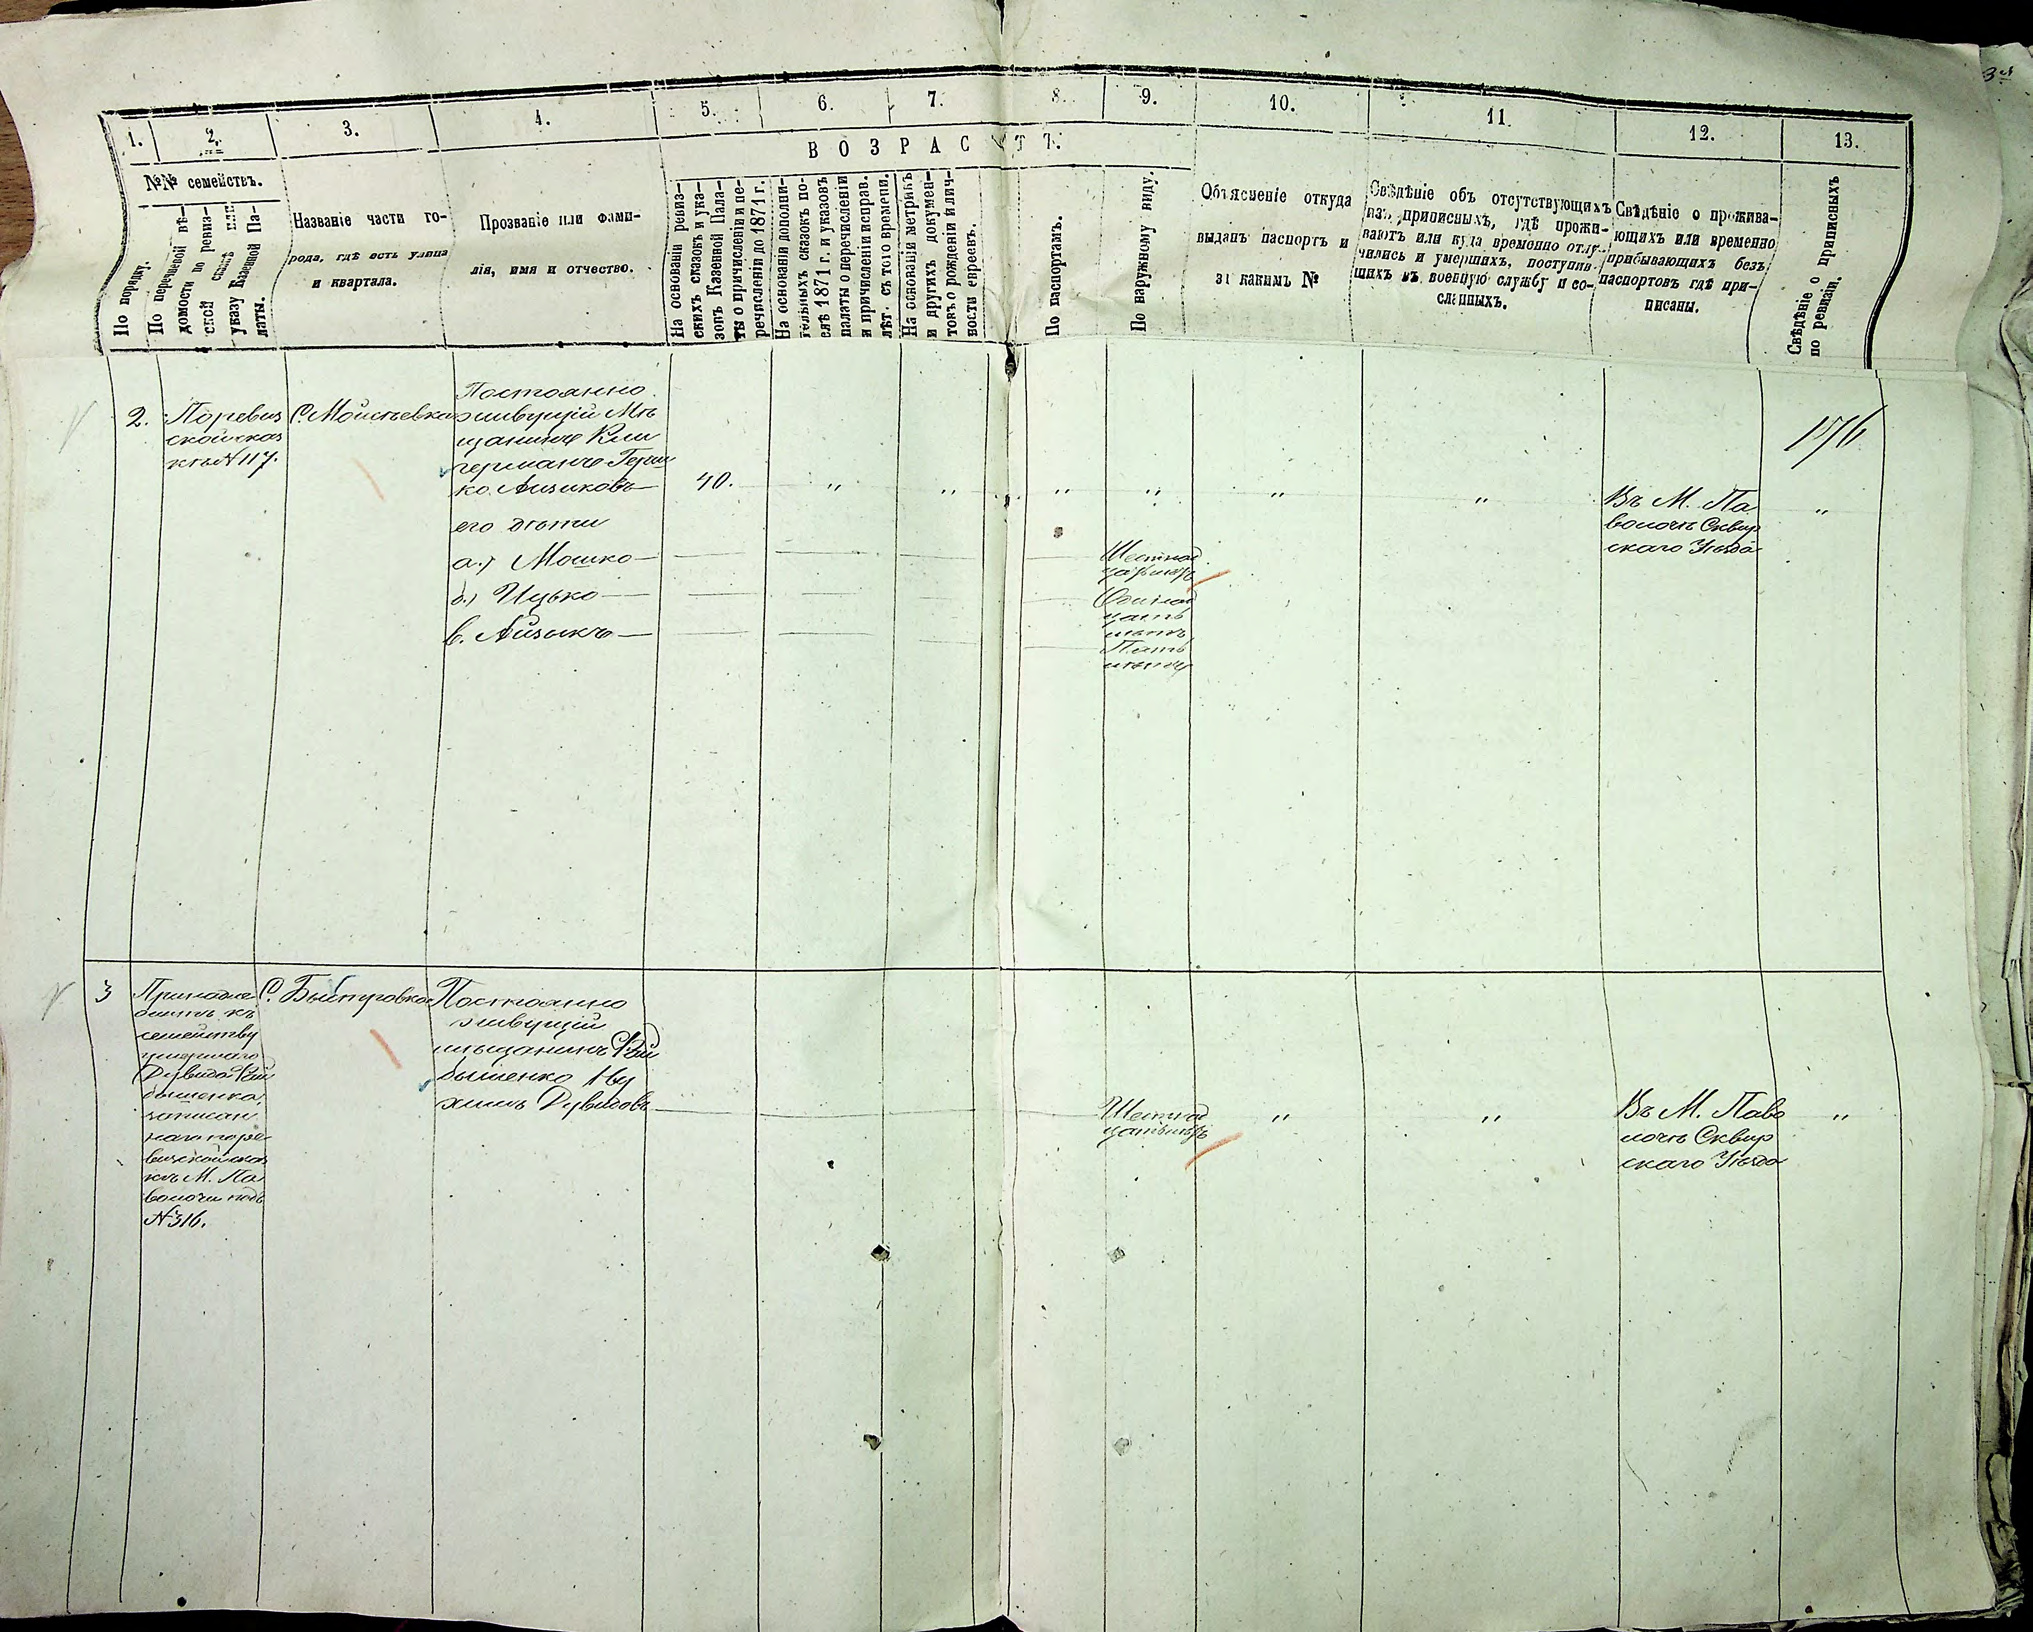 1. 2. 3. 4. 5. 6. 7. 8. 9. 10. 11. 12. 13.
№№ семействъ.
ВОЗРАСТЪ.
По порядку.
По перечневой вѣ-
домости по ревиз-
ской сказкѣ или
указу Казенной Па-
латы.
Названіе части го-
рода, гдѣ есть улица
и квартала.
Прозваніе или фами-
лія, имя и отчество.
На основаніи ревиз-
скихъ сказокъ и ука-
зовъ Казенной Пала-
ты о причисленіи и пе-
речисленіи до 1871 г.
На основаніи дополни-
тельныхъ сказокъ по-
слѣ 1871 г. и указовъ
палаты о перечисленіи
и причисленіи исправ.
лѣт. съ того времени.
На основаніи метрикъ
и другихъ докумен-
товъ о рожденіи и лич-
ности евреевъ.
По паспортамъ.
По наружному виду.
Объясненіе откуда
выданъ паспортъ и
за какимъ №
Свѣдѣніе объ отсутствующихъ
изъ приписныхъ, гдѣ прожи-
ваютъ или куда временно отлу-
чились и умершихъ, поступив-
шихъ въ военную службу и со-
сланныхъ.
Свѣдѣніе о прожива-
ющихъ или временно
прибывающихъ безъ
паспортовъ гдѣ при-
писаны.
Свѣдѣніе о приписныхъ
по ревизіи.
2.
По ревиз
ской сказ
кѣ № 117.
С. Мойсѣевка
Постоянно
живущій Мѣ
щанинъ Кли
германъ Герш
ко Айзиковъ
40. " " " " " "
Въ М. Па
волочѣ Сквир
скаго Уѣзда
"
176
его дѣти
а.) Мошко
Шестнад
цать лѣтъ
б.) Ицько
Одинад
цать
лѣтъ
в. Айзикъ
Пять
лѣтъ
3
Принадле
житъ къ
семейству
умершаго
Дувида
записан
наго по ре
визской сказ
кѣ М. Па
волочи подъ
№ 316.
С.
Постоянно
живущій
мѣщанинъ
Ну
химъ Дувидовъ
Шестнад
цать лѣтъ
" "
Въ М. Паво
лочѣ Сквир
скаго Уѣзда
"